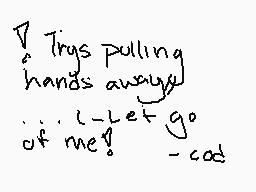 ! Trys pulling
hands awaye
...L-Let go
of me!
- cod